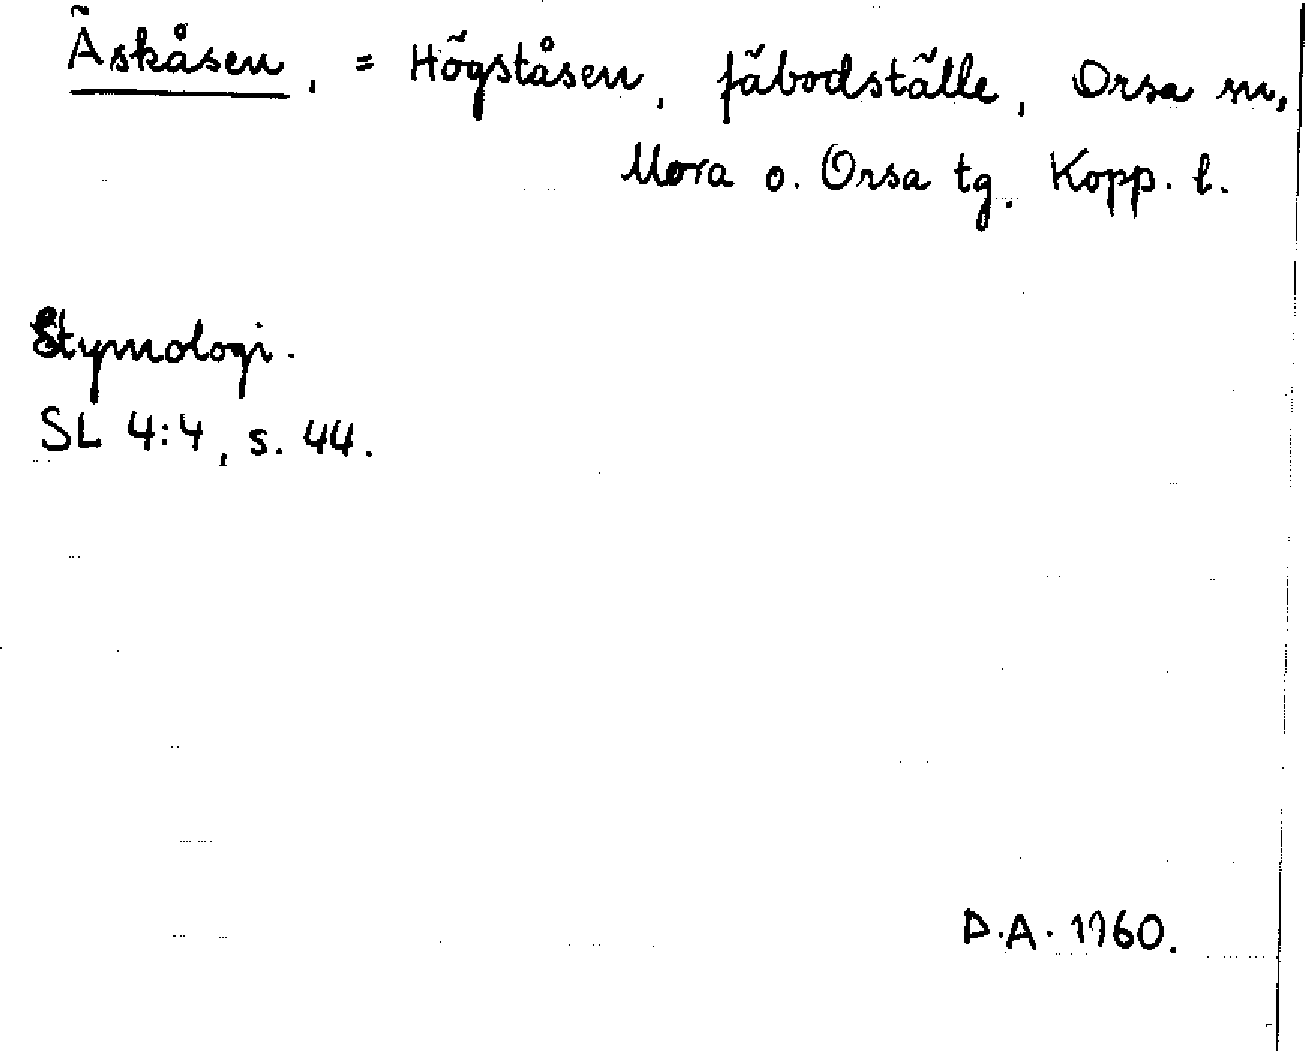 Äskåsen, = Högståsen, fäbodställe, Orsa sn,
Mora o. Orsa tg. Kopp. l.
Etymologi.
SL 4:4, s. 44.
D.A. 1960.